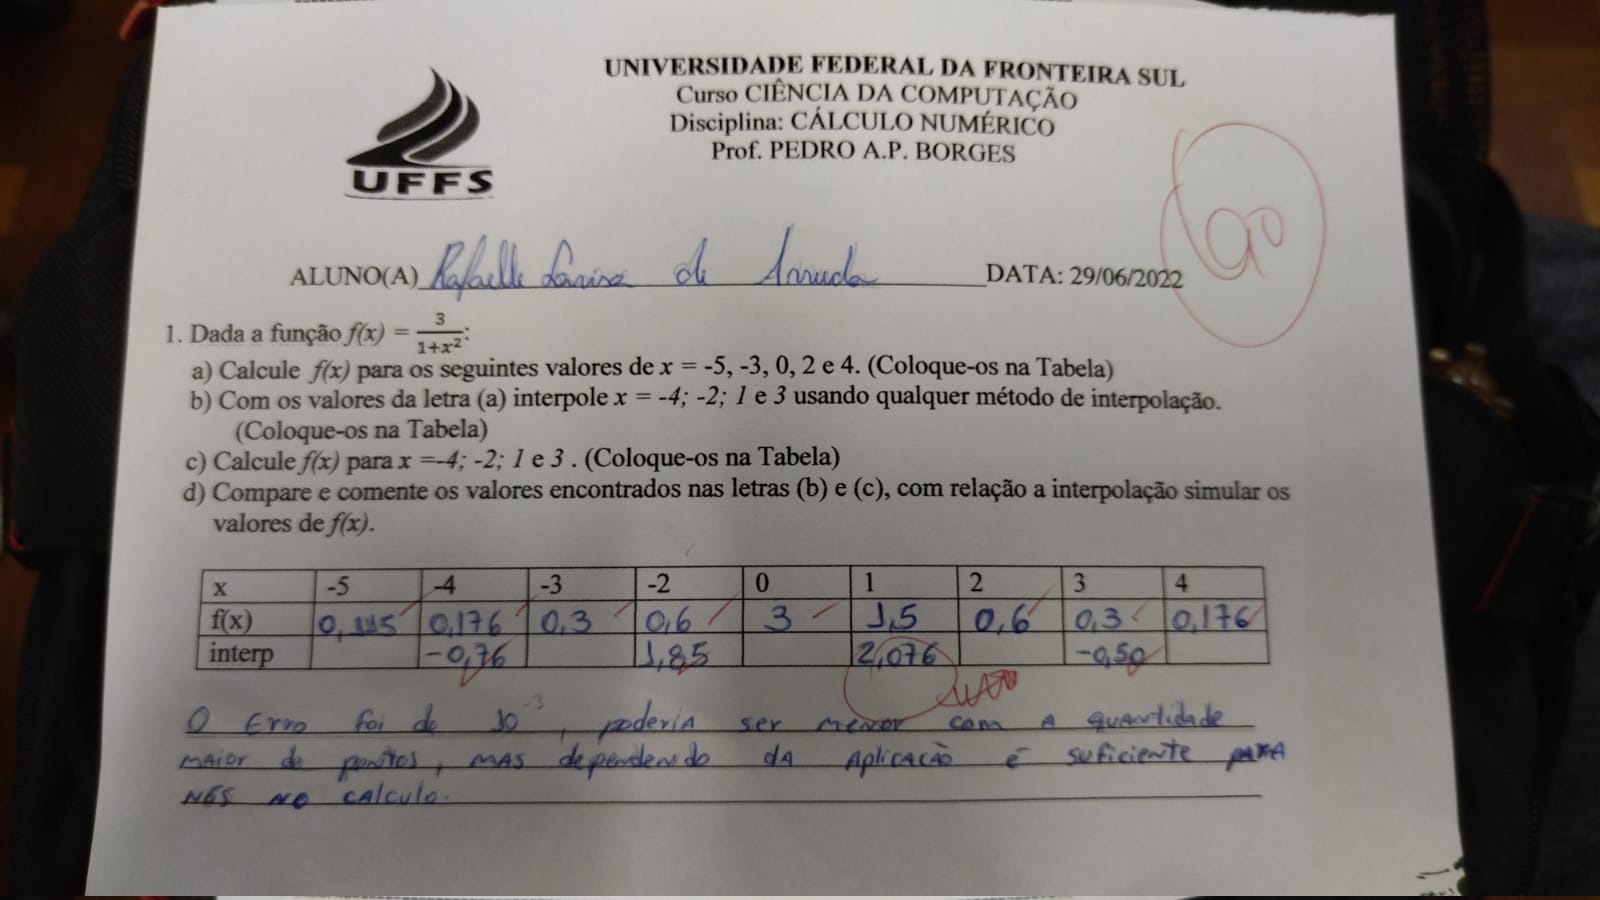 UNIVERSIDADE FEDERAL DA FRONTEIRA SUL
Curso CIÊNCIA DA COMPUTAÇÃO
Disciplina: CÁLCULO NUMÉRICO
Prof. PEDRO A.P. BORGES
UFFS
90
ALUNO(A) Rafaelle Larissa de Arruda DATA: 29/06/2022
1. Dada a função f(x) = 3/(1+x²):
a) Calcule f(x) para os seguintes valores de x = -5, -3, 0, 2 e 4. (Coloque-os na Tabela)
b) Com os valores da letra (a) interpole x = -4; -2; 1 e 3 usando qualquer método de interpolação.
(Coloque-os na Tabela)
c) Calcule f(x) para x =-4; -2; 1 e 3 . (Coloque-os na Tabela)
d) Compare e comente os valores encontrados nas letras (b) e (c), com relação a interpolação simular os
valores de f(x).
x -5 -4 -3 -2 0 1 2 3 4
f(x) 0,115 0,176 0,3 0,6 3 1,5 0,6 0,3 0,176
interp -0,76 1,85 2,076 -0,50
O Erro foi de 10⁻³, poderia ser menor com a quantidade
maior de pontos, mas dependendo da aplicação é suficiente para
nós no calculo.